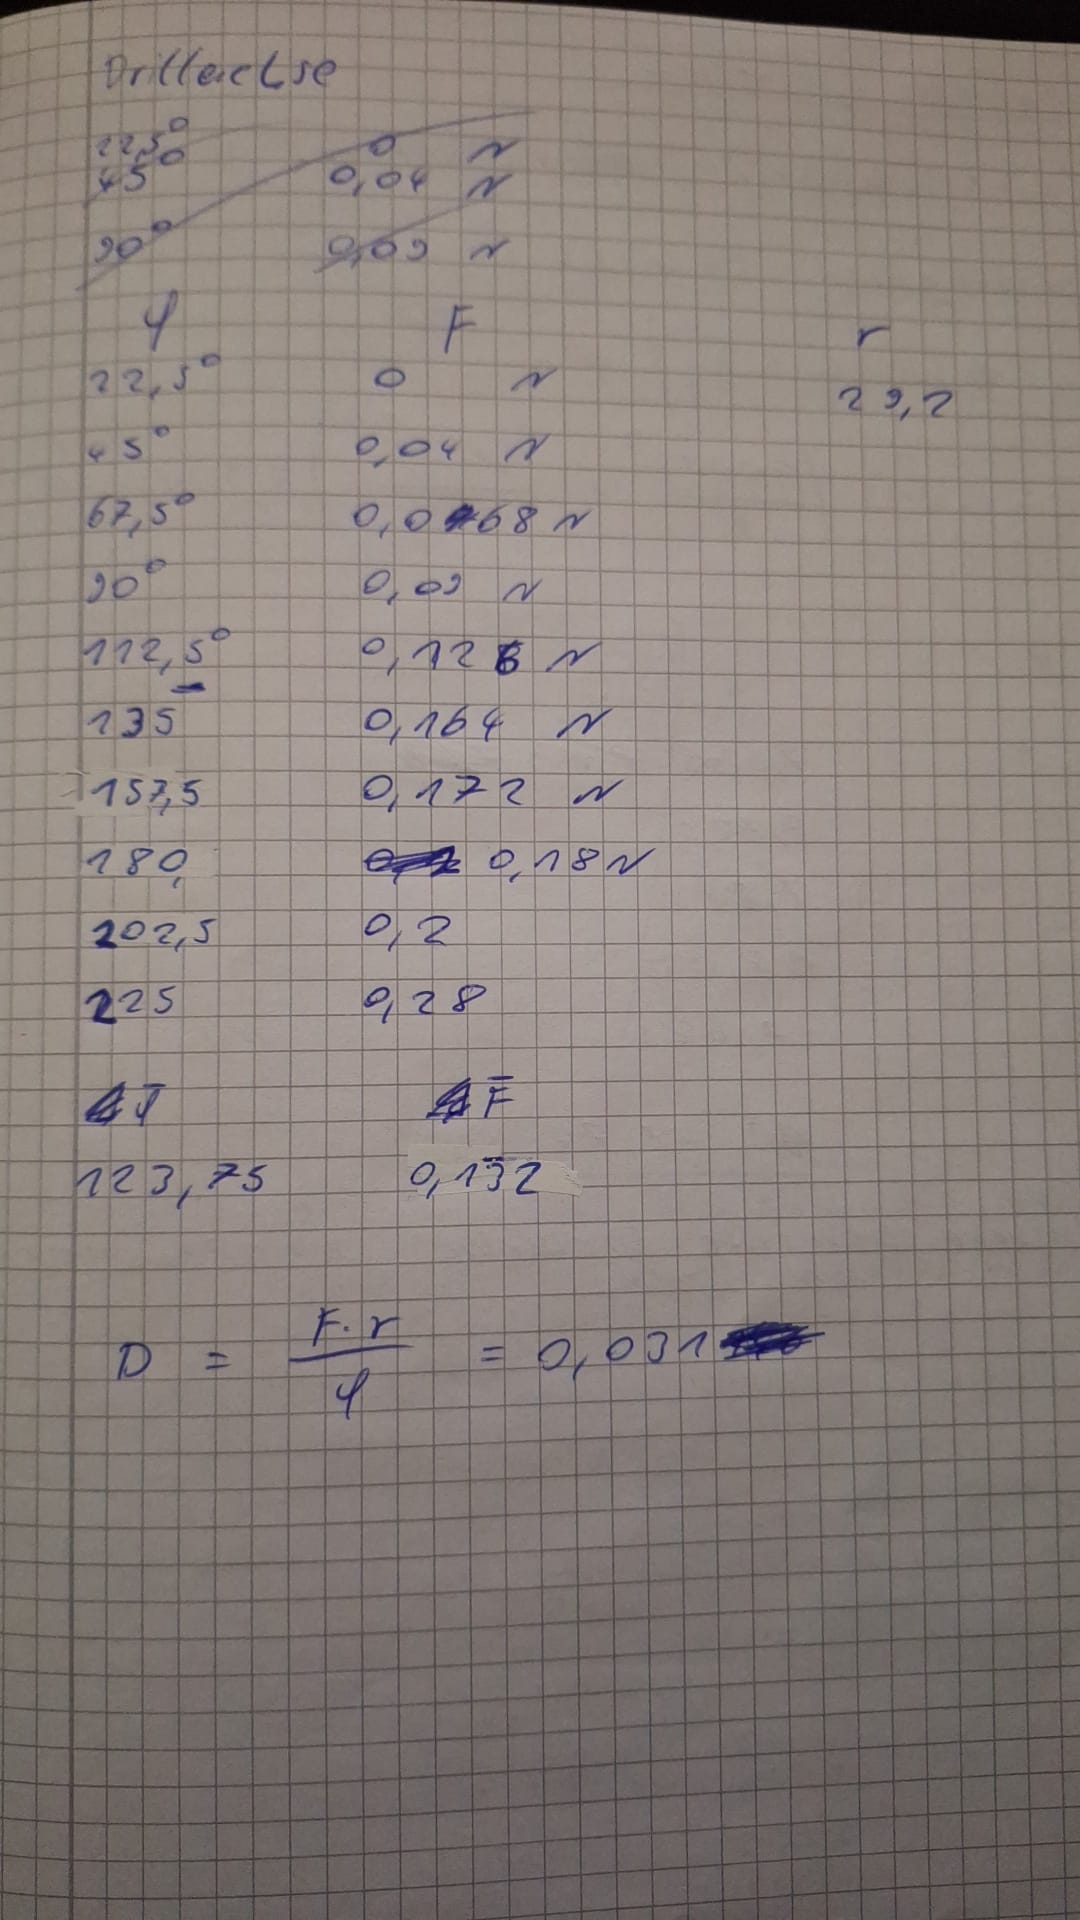 Drillachse
22,5° 0 N
45° 0,04 N
90° 0,09 N
φ F r
22,5° 0 N 29,2
45° 0,04 N
67,5° 0,068 N
90° 0,09 N
112,5° 0,126 N
135 0,164 N
157,5 0,172 N
180, 0,18 N
202,5 0,2
225 0,28
φ̄ F̄
123,75 0,132
D = F·r / φ = 0,031